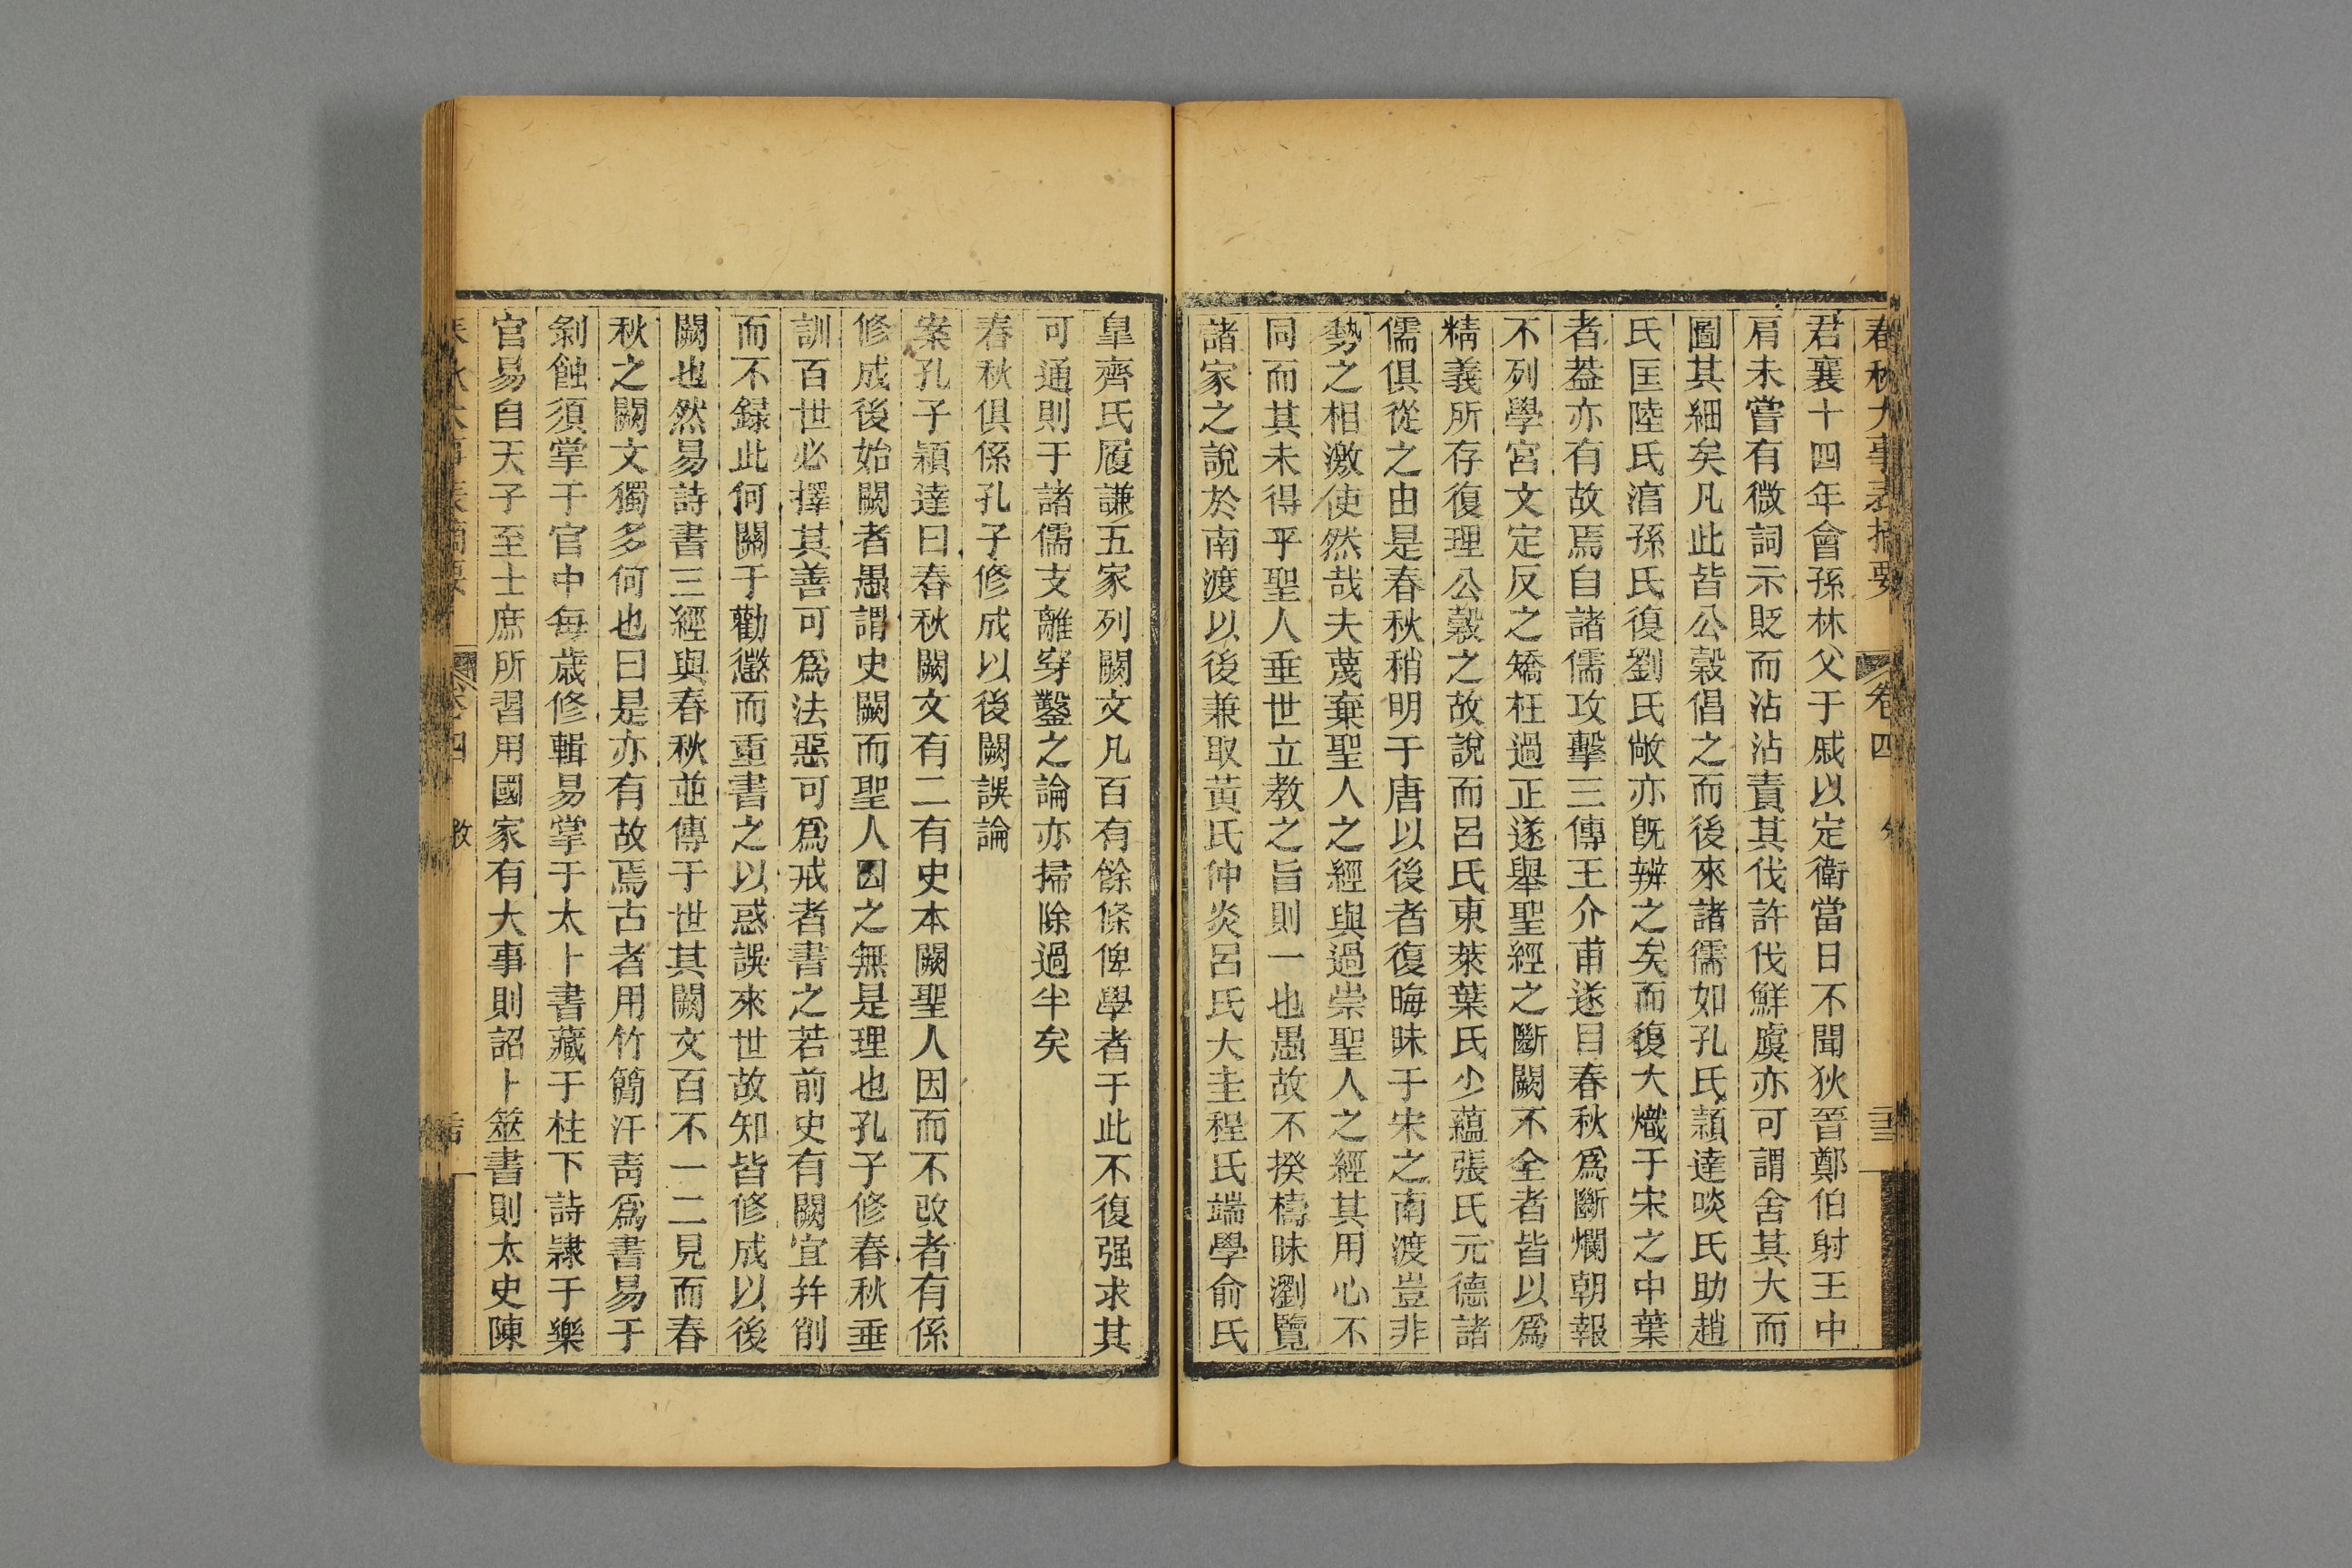 春秋大事表摘要 卷四
君襄十四年會孫林父于戚以定衛當日不聞狄晉鄭伯射王中
肩未嘗有微詞示貶而沾沾責其伐許伐鮮虞亦可謂舍其大而
圖其細矣凡此皆公穀倡之而後來諸儒如孔氏穎達啖氏助趙
氏匡陸氏淳孫氏復劉氏敞亦旣辨之矣而復大熾于宋之中葉
者葢亦有故焉自諸儒攻擊三傳王介甫遂目春秋爲斷爛朝報
不列學宮文定反之矯枉過正遂舉聖經之斷闕不全者皆以爲
精義所存復理公穀之故說而呂氏東萊葉氏少蘊張氏元德諸
儒俱從之由是春秋稍明于唐以後者復晦昧于宋之南渡豈非
勢之相激使然哉夫蔑棄聖人之經與過崇聖人之經其用心不
同而其未得乎聖人垂世立教之旨則一也愚故不揆檮昧瀏覽
諸家之說於南渡以後兼取黃氏仲炎呂氏大圭程氏端學俞氏
皐齊氏履謙五家列闕文凡百有餘條俾學者于此不復强求其
可通則于諸儒支離穿鑿之論亦掃除過半矣
春秋俱係孔子修成以後闕誤論
案孔子穎達曰春秋闕文有二有史本闕聖人因而不改者有係
修成後始闕者愚謂史闕而聖人因之無是理也孔子修春秋垂
訓百世必擇其善可爲法惡可爲戒者書之若前史有闕宜幷削
而不録此何關于勸懲而重書之以惑誤來世故知皆修成以後
闕也然易詩書三經與春秋並傳于世其闕文百不一二見而春
秋之闕文獨多何也曰是亦有故焉古者用竹簡汗靑爲書易于
剝蝕須掌于官中每歲修輯易掌于太卜書藏于柱下詩隷于樂
官易自天子至士庶所習用國家有大事則詔卜筮書則太史陳